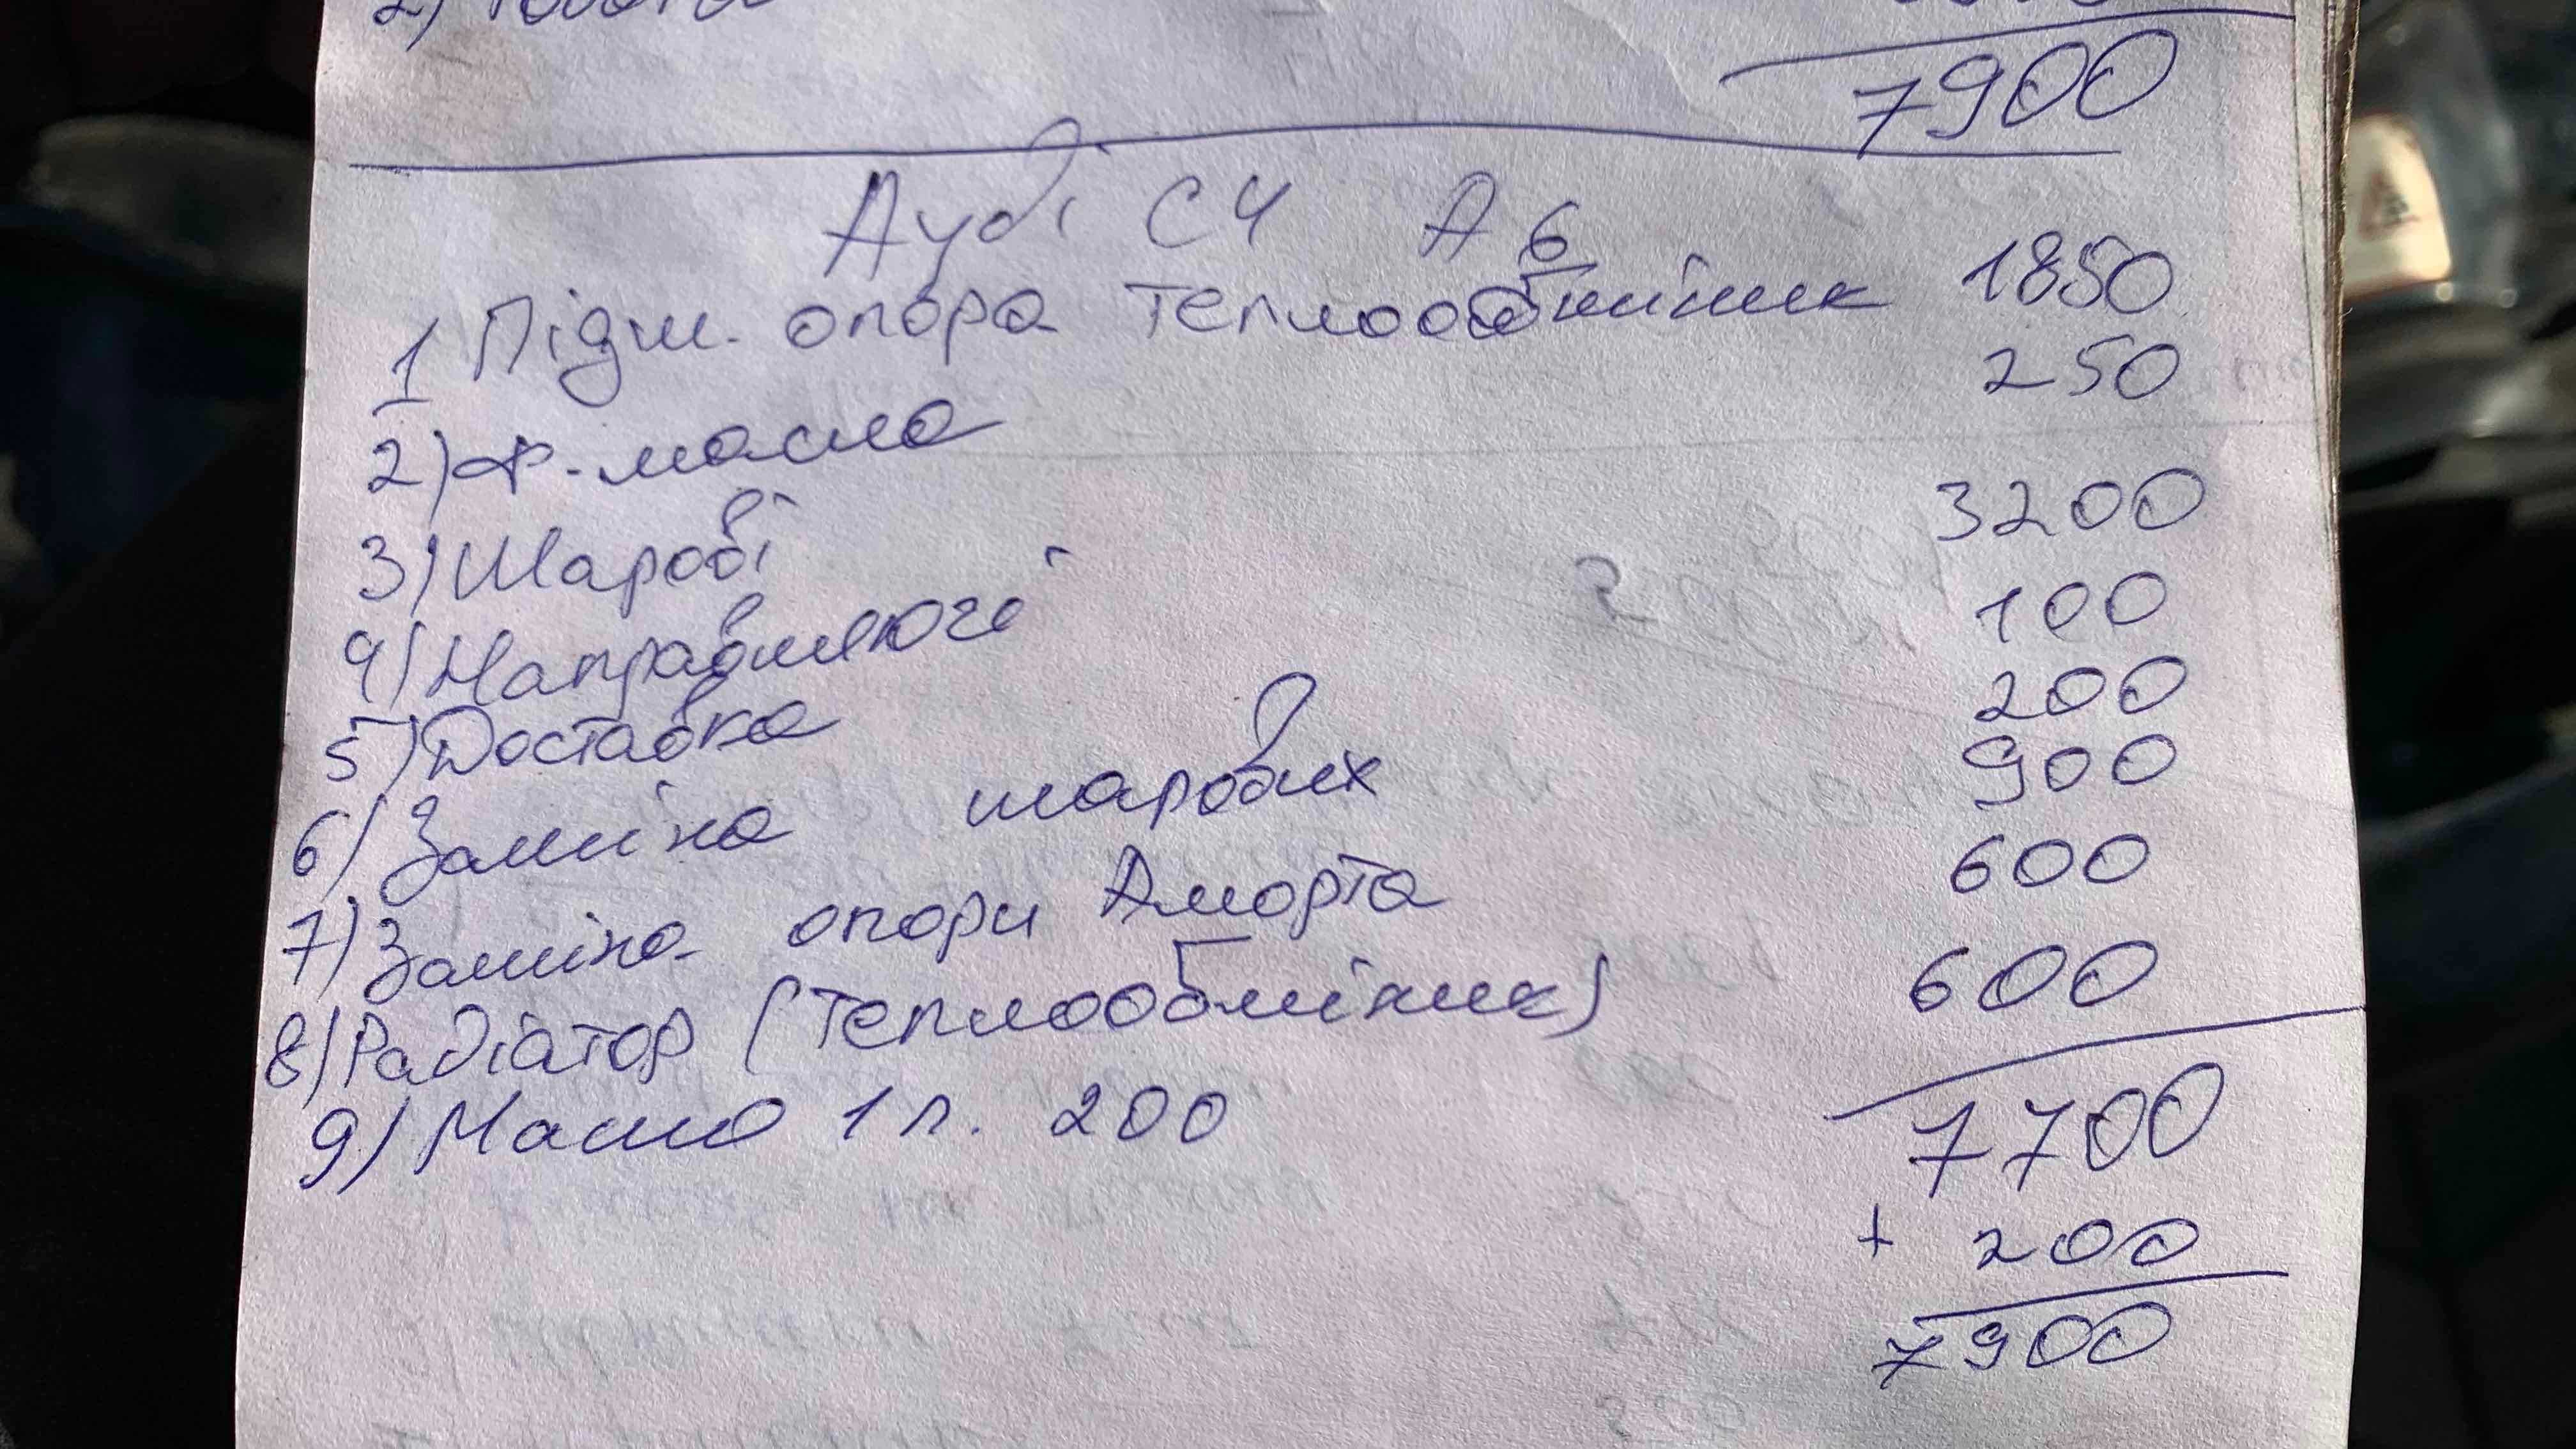 2) Робота
7900
Ауді С4 А6
1 Підш. опора теплообмінник 1850
2) ф. масла 250
3) Шарові 3200
4) Направляючі 100
5) Доставка 200
6) Заміна шарових 900
7) Заміна опори Аморта 600
8) Радіатор (теплообмінник) 600
9) Масло 1 л. 200
7700
+ 200
7900